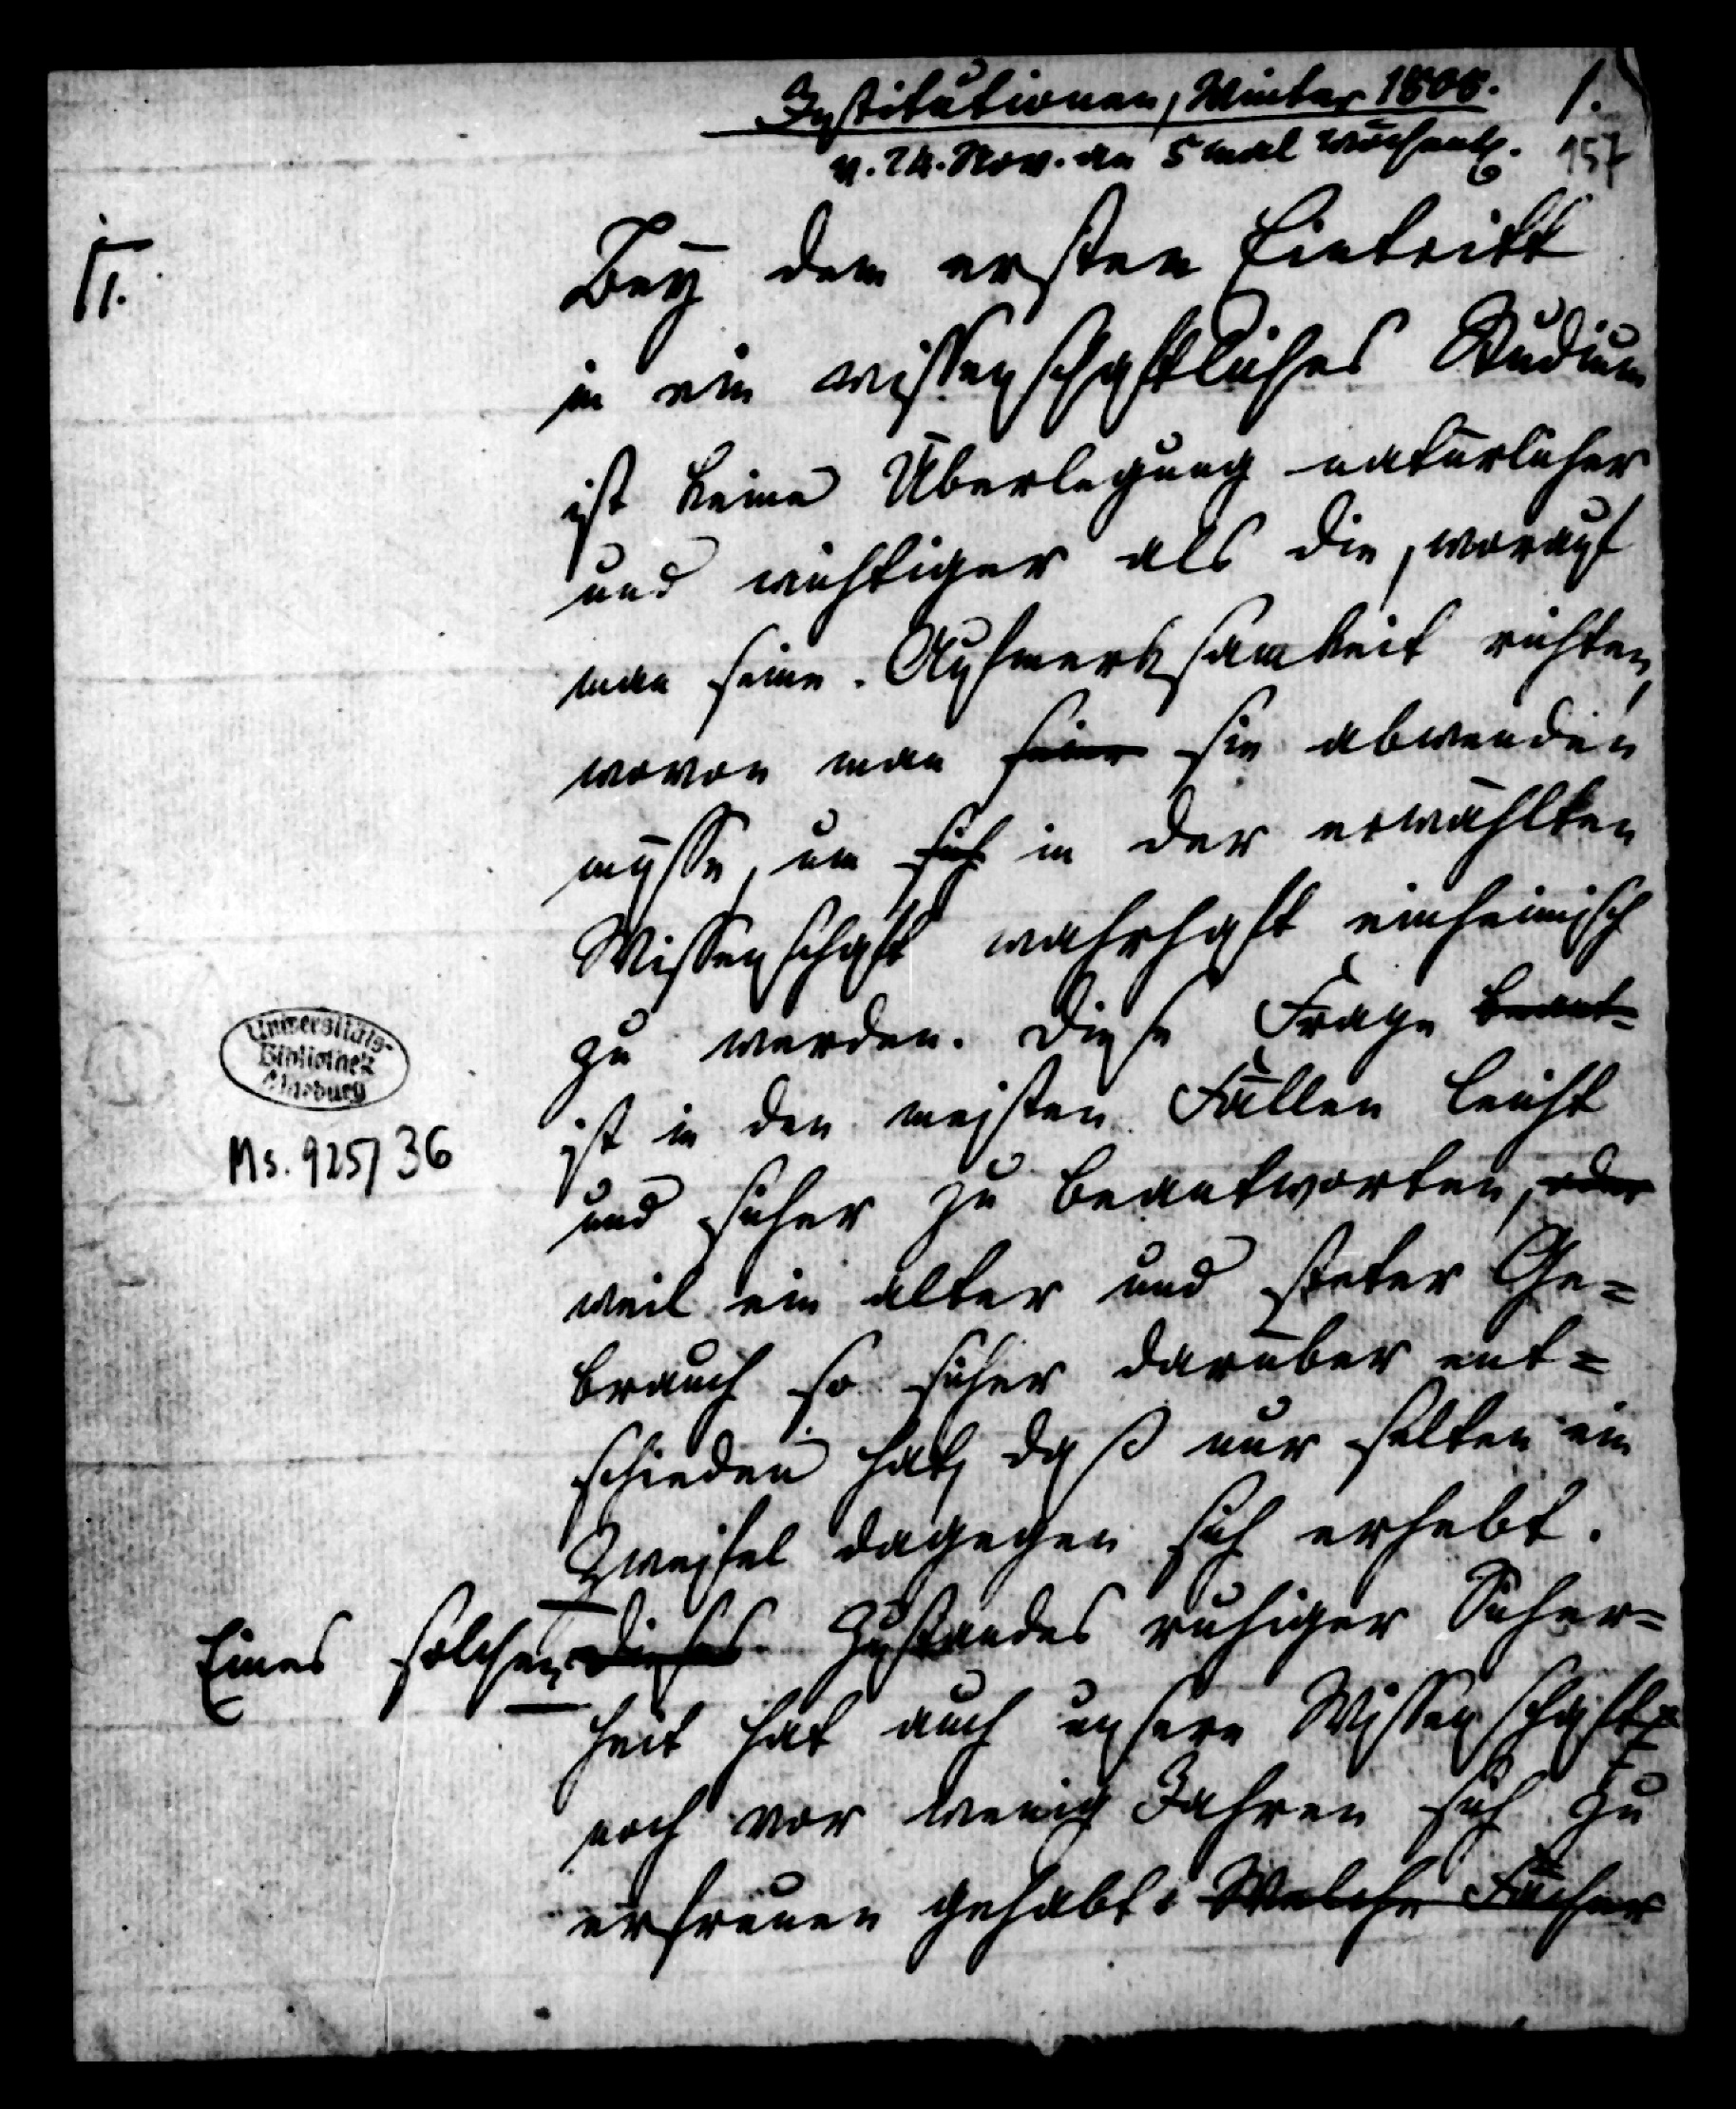 Institutionen, Winter 1808.
1.
v. 24. Nov. an 5 mal wöchentl.
157
II.
Bey dem ersten Eintritt
in ein wissenschaftliches Studium
ist keine Überlegung natürlicher
und wichtiger als die, worauf
man seine Aufmerksamkeit richten,
wovon man seine sie abwenden
müsse, um sich in der erwählten
Wissenschaft wahrhaft einheimisch
zu werden. Diese Frage beant=
ist in den meisten Fällen leicht
und sicher zu beantworten, oder
weil ein alter und steter Ge=
brauch so sicher darüber ent=
schieden hat, daß nur selten ein
Zweifel dagegen sich erhebt.
Eines solchen dieses Zustandes ruhiger Sicher=
heit hat auch unsere Wissenschaft
noch vor wenig Jahren sich zu
erfreuen gehabt. Welche Fächer
Universitäts-
Bibliothek
Marburg
Ms. 925/36